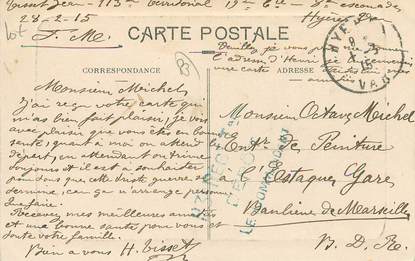 Tisset Jean - 113e territorial 19e Cie - 8e escouade
28-2-15 Hyères Var
F. M.
CARTE POSTALE
Veuillez je vous prie
l'adresse d'Henri je lui
une carte
CORRESPONDANCE
ADRESSE
HYÈRES
VAR
Monsieur Michel
J'ai reçu votre carte qui
m'as bien fait plaisir, je vous
avec plaisir que vous êtes en bonne
santé, quant à moi on attend
départ, en attendant on trime
toujours et il est à souhaiter
dons que cette triste guerre se
termine, car ça n'arrange personne
Recevez mes meilleures amitiés
et une bonne santé pour vous et
toute votre famille.
Bien à vous H. Tisset
Monsieur Octave Michel
Entr. de Peinture
à l'Estaque Gare
Banlieue de Marseille
B. D. R.
LE COMMANDANT